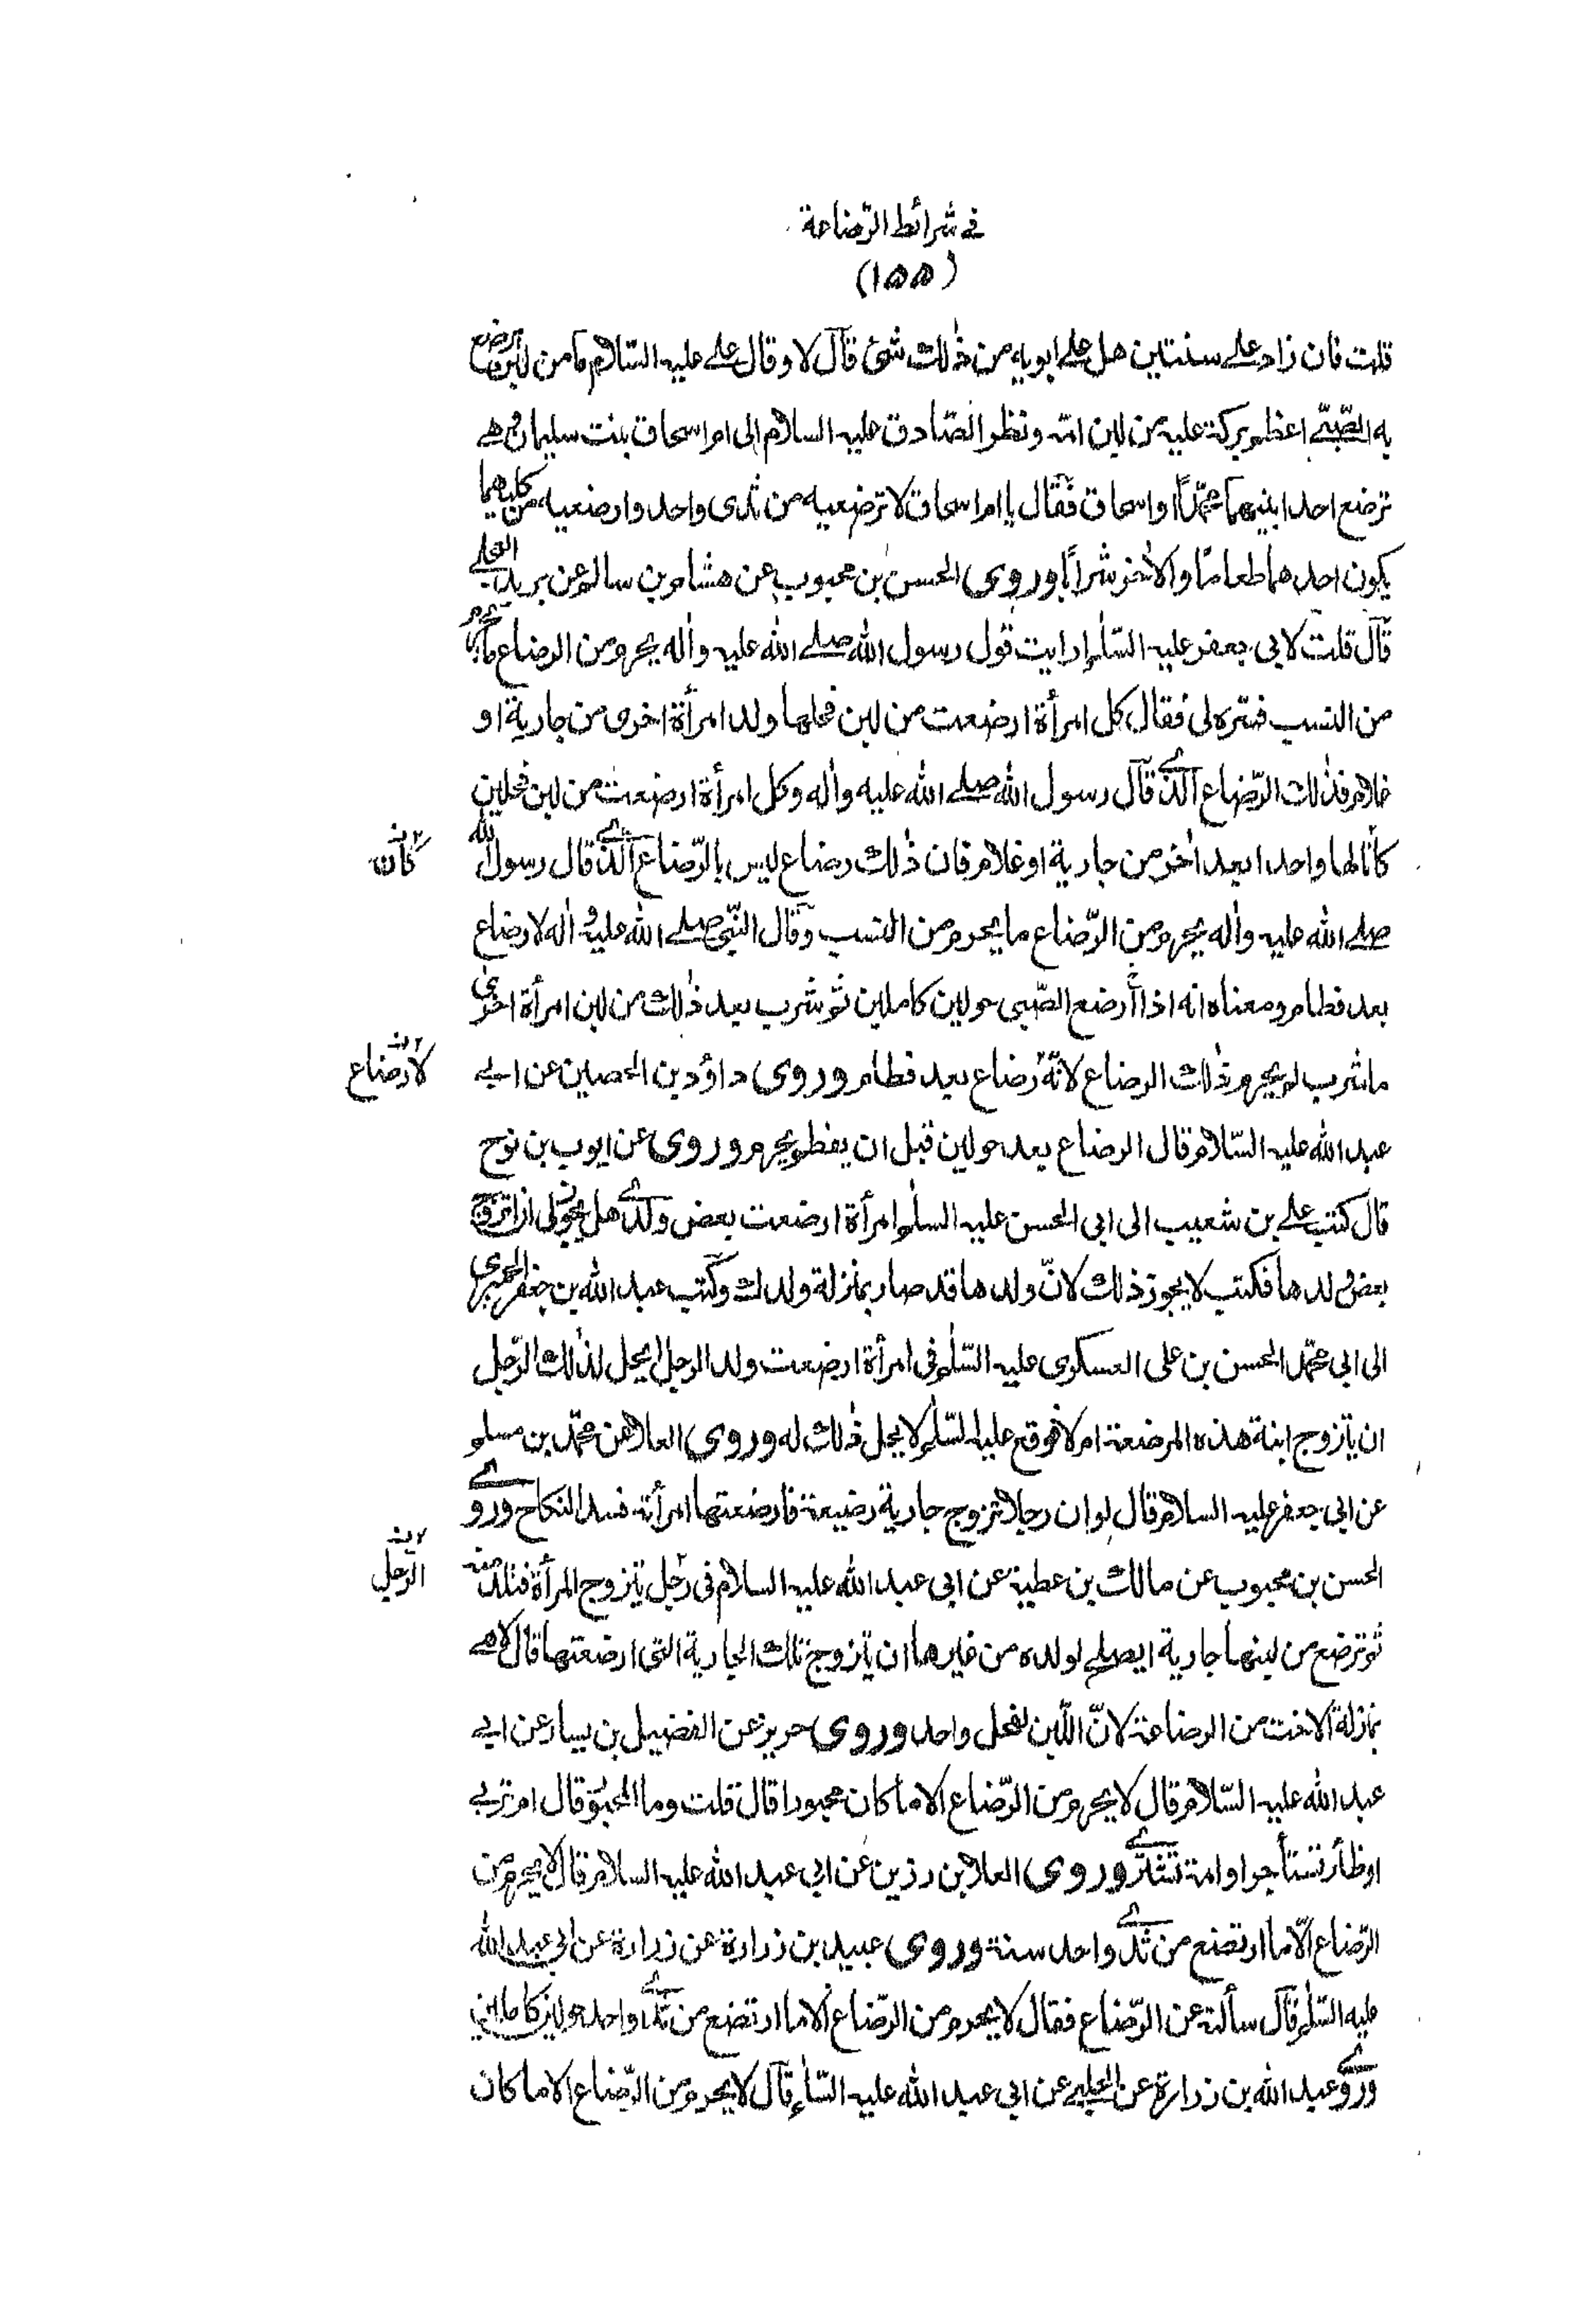 في شرائط الرّضاعة
(١٥٥)
قلت فان زاد على سنتين هل على ابويه من ذٰلك شئ قال لا وقال على عليه السّلام ما من لبن يرضع
به الصّبيّ اعظم بركة عليه من لبن امّه ونظر الصّادق عليه السلام الى ام اسحاق بنت سليمان وهي
ترضع احد ابنيهما محمّدًا او اسحاق فقال يا ام اسحاق لا ترضعيه من ثدى واحد وارضعيه من كليهما
يكون احدهما طعامًا والاٰخر شرابًا وروى الحسن بن محبوب عن هشام بن سالم عن بريد العجلي
قال قلت لابى جعفر عليه السّلٰم ارايت قول رسول الله صلى الله عليه واٰله يحرم من الرضاع ما يحرم
من النسب فسّره لى فقال كل امرأة ارضعت من لبن فحلها ولد امرأة اخرى من جارية او
غلام فذٰلك الرّضاع الّذي قال رسول الله صلى الله عليه واٰله وكل امرأة ارضعت من لبن فحلين
كانا لها واحدا بعد اٰخر من جارية او غلام فان ذٰلك رضاع ليس بالرّضاع الّذي قال رسول الله
كان
صلى الله عليه واٰله يحرم من الرّضاع ما يحرم من النسب وقال النّبي صلى الله عليه واٰله لا رضاع
بعد فطام ومعناه انه اذا أرضع الصّبى حولين كاملين ثم شرب بعد ذٰلك من لبن امرأة اخرى
ما شرب لم يحرم ذٰلك الرضاع لانّه رضاع بعد فطام وروى داؤد بن الحصين عن ابي
لا رضاع
عبد الله عليه السّلام قال الرضاع بعد حولين قبل ان يفطم يحرم وروى عن ايوب بن نوح
قال كتب على بن شعيب الى ابى الحسن عليه السلٰم امرأة ارضعت بعض ولدي هل يجوز لى ان اتزوج
بعض ولدها فكتب لا يجوز ذلك لانّ ولدها قد صار بمنزلة ولدك وكتب عبد الله بن جعفر الحميرى
الى ابى محمّد الحسن بن على العسكرى عليه السّلٰم فى امرأة ارضعت ولد الرجل ايحل لذٰلك الرّجل
ان يتزوج ابنة هذه المرضعة ام لا فوقع عليه السّلٰم لا يحل ذٰلك له وروى العلا عن محمّد بن مسلم
عن ابى جعفر عليه السلام قال لو ان رجلا تزوج جارية رضيعة فارضعتها امرأته فسد النكاح وروى
الحسن بن محبوب عن مالك بن عطية عن ابى عبد الله عليه السلام فى رجل يتزوج المرأة فتلد منه
الرجل
ثم ترضع من لبنها جارية ايصلح لولده من غيرها ان يتزوج تلك الجارية التى ارضعتها قال لا هي
بمنزلة الاخت من الرضاعة لانّ اللّبن لفحل واحد وروى حريز عن الفضيل بن يسار عن ابي
عبد الله عليه السّلام قال لا يحرم من الرّضاع الا ما كان مجبورا قال قلت وما المجبور قال ام تربي
او ظأر تستأجر او امة تشترى وروى العلا بن رزين عن ابى عبد الله عليه السلام قال لا يحرم من
الرّضاع الّا ما ارتضع من ثدي واحد سنة وروى عبيد بن زرارة عن زرارة عن ابى عبد الله
عليه السّلٰم قال سألته عن الرّضاع فقال لا يحرم من الرّضاع الا ما ارتضع من ثدي واحد حولين كاملين
وروى عبد الله بن زرارة عن الحلبي عن ابى عبد الله عليه السّلٰم قال لا يحرم من الرّضاع الا ما كان